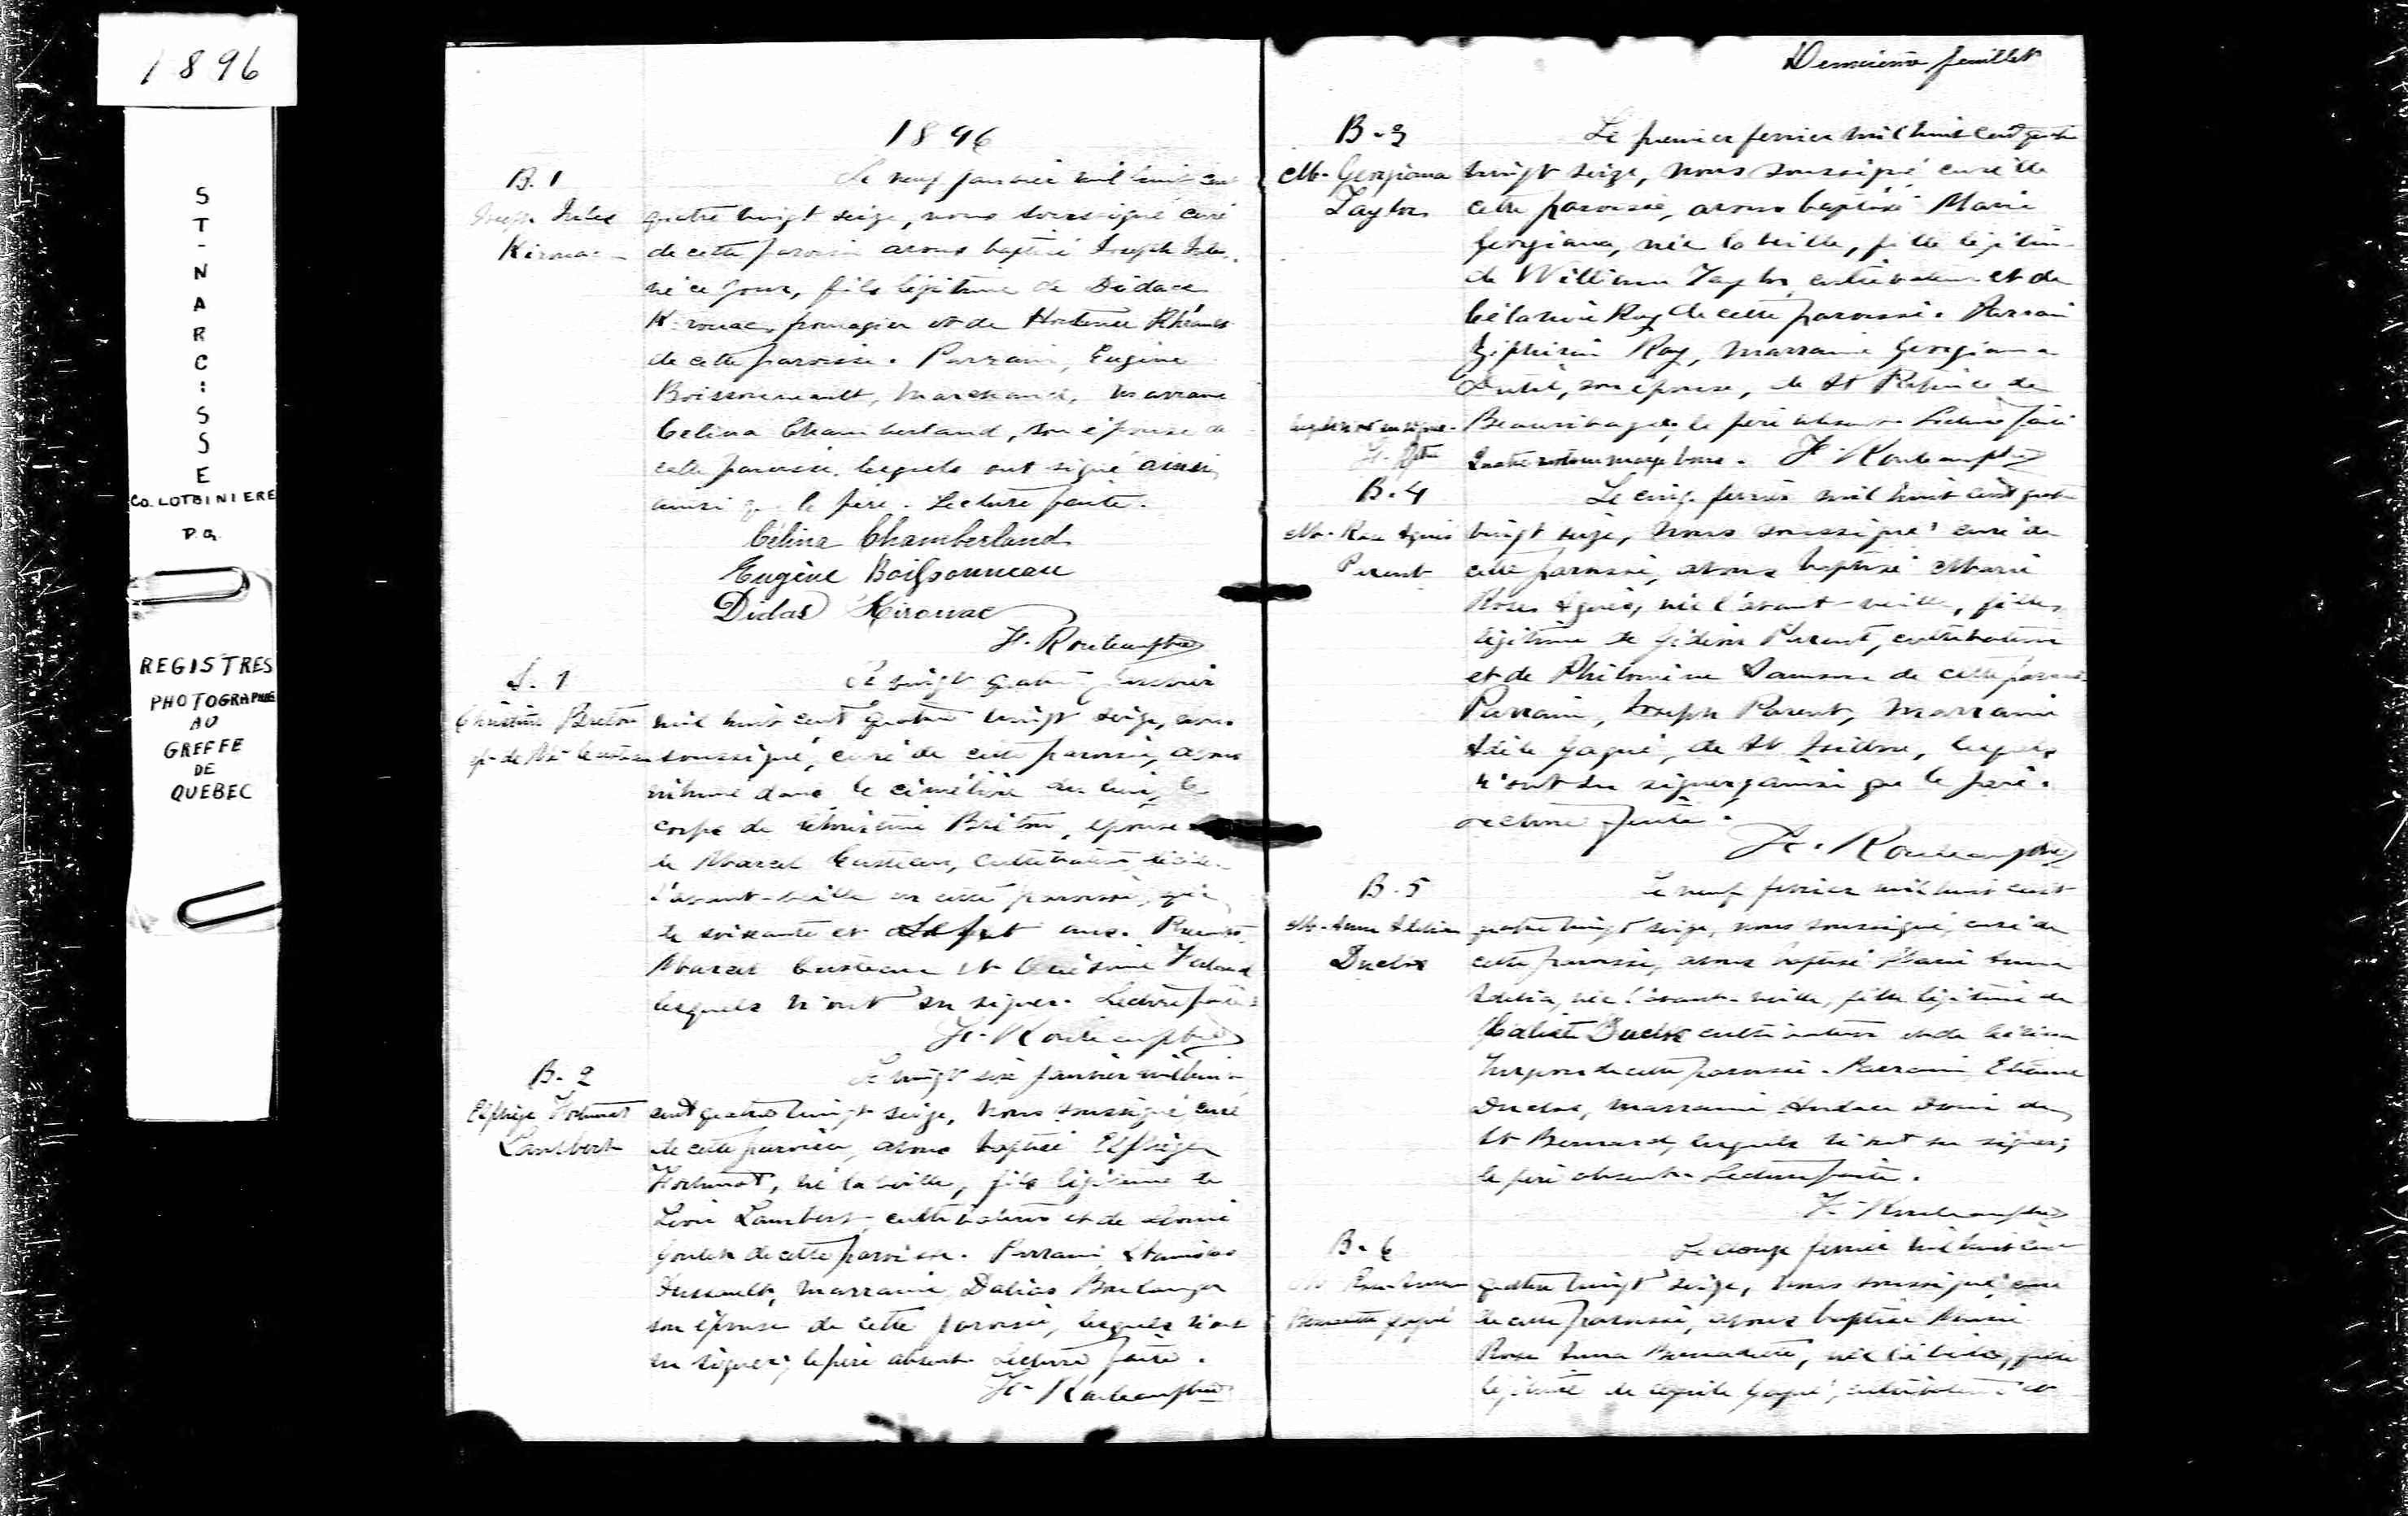 1896
ST-NARCISSE
CO. LOTBINIERE
P.Q.
REGISTRES
PHOTOGRAPHIÉS
AU
GREFFE
DE
QUEBEC
1896
B. 1
Joseph Jules
Kirouac
Le neuf janvier mil huit cent
quatre vingt seize, nous soussigné curé
de cette paroisse avons baptisé Joseph Jules
né ce jour, fils légitime de Didace
Kirouac, fromagier et de Hortense
de cette paroisse. Parrain, Eugène
Boissonneault, marchand, marraine
Celina Chamberland, son épouse de
cette paroisse, lesquels ont signé ainsi
ainsi que le père. Lecture faite.
Célina Chamberland
Eugène Boissonneau
Didas Kirouac
H. Rouleau ptre
S. 1
Christine Breton
Le vingt quatre janvier
mil huit cent quatre vingt seize, nous
soussigné, curé de cette paroisse, avons
inhumé dans le cimetière du lieu, le
corps de Christine Breton, épouse
de Marcel Couteau, cultivateur, décédée
l'avant-veille en cette paroisse, agée
de soixante et ans. Présents,
Marcel et
lesquels n'ont su signer. Lecture faite.
H. Rouleau ptre
B. 2
Elphège Fortunat
Lambert
Le vingt six janvier mil huit
cent quatre vingt seize, nous soussigné curé
de cette paroisse, avons baptisé Elphège
Fortunat, né la veille, fils légitime de
Léon Lambert, cultivateur et de
de cette paroisse. Parrain, Stanislas
Dussault, marraine, Dalias Boulanger
son épouse de cette paroisse, lesquels n'ont
su signer; le père absent. Lecture faite.
H. Rouleau ptre
Deuxième feuillet
B. 3
M. Georgiana
Taylor
Le premier fevrier mil huit cent quatre
vingt seize, nous soussigné curé de
cette paroisse, avons baptisé Marie
Georgiana, née la veille, fille légitime
de William Taylor, cultivateur et de
Roy de cette paroisse. Parrain
Zéphirin Roy, marraine Georgiana
son épouse, de St Patrice de
Beaurivage; le père absent. Lecture faite
Quatre mots en marge bons. H. Rouleau ptre
B. 4
M. Rose Agnès
Parent
Le cinq fevrier mil huit cent quatre
vingt seize, nous soussigné curé de
cette paroisse, avons baptisé Marie
Rose Agnès, née l'avant-veille, fille
légitime de Gédéon Parent, cultivateur
et de Philomène Samson de cette paroisse
Parrain, Joseph Parent, marraine
Adèle Gagné, de St Isidore, lesquels
n'ont su signer, ainsi que le père.
Lecture faite.
H. Rouleau ptre
B. 5
M. Anna Adelia
Duclos
Le neuf fevrier mil huit cent
quatre vingt seize, nous soussigné, curé de
cette paroisse, avons baptisé Marie Anna
Adelia, née l'avant-veille, fille légitime de
Calixte Duclos cultivateur et de
Turgeon de cette paroisse. Parrain, Etienne
Duclos, marraine de
St Bernard, lesquels n'ont su signer;
le père absent. Lecture faite.
H. Rouleau ptre
B. 6
M. Rose Anna
Bernadette Gagné
Le douze fevrier mil huit cent
quatre vingt seize, nous soussigné, curé
de cette paroisse, avons baptisé Marie
Rose Anna Bernadette, née la veille, fille
légitime de Gagné, cultivateur et